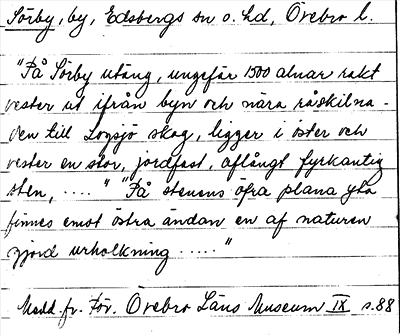 Sörby, by, Edsbergs sn o. hd, Örebro l.
"På Sörby utäng, ungefär 1500 alnar rakt
vester ut ifrån byn och nära råskilna-
den till Logsjö skog, ligger i öster och
vester en stor, jordfast, aflångt fyrkantig
sten, .... " "På stenens öfra plana yta
finnes emot östra ändan en af naturen
gjord urholkning ..... "
Medd. fr. För. Örebro Läns Museum IX s. 88